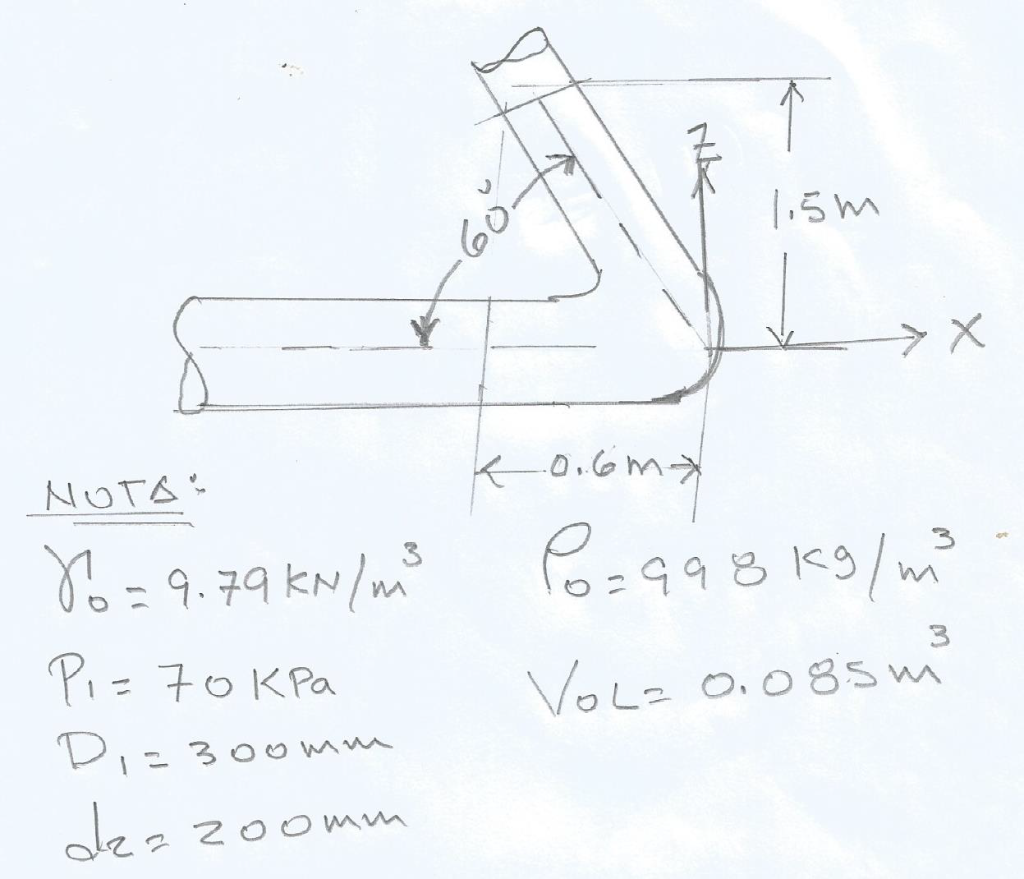 Z
60°
1.5m
X
0.6m
NOTA:
γo = 9.79 KN/m³ ρo = 998 Kg/m³
P1 = 70 KPa VOL = 0.085m³
D1 = 300mm
d2 = 200mm